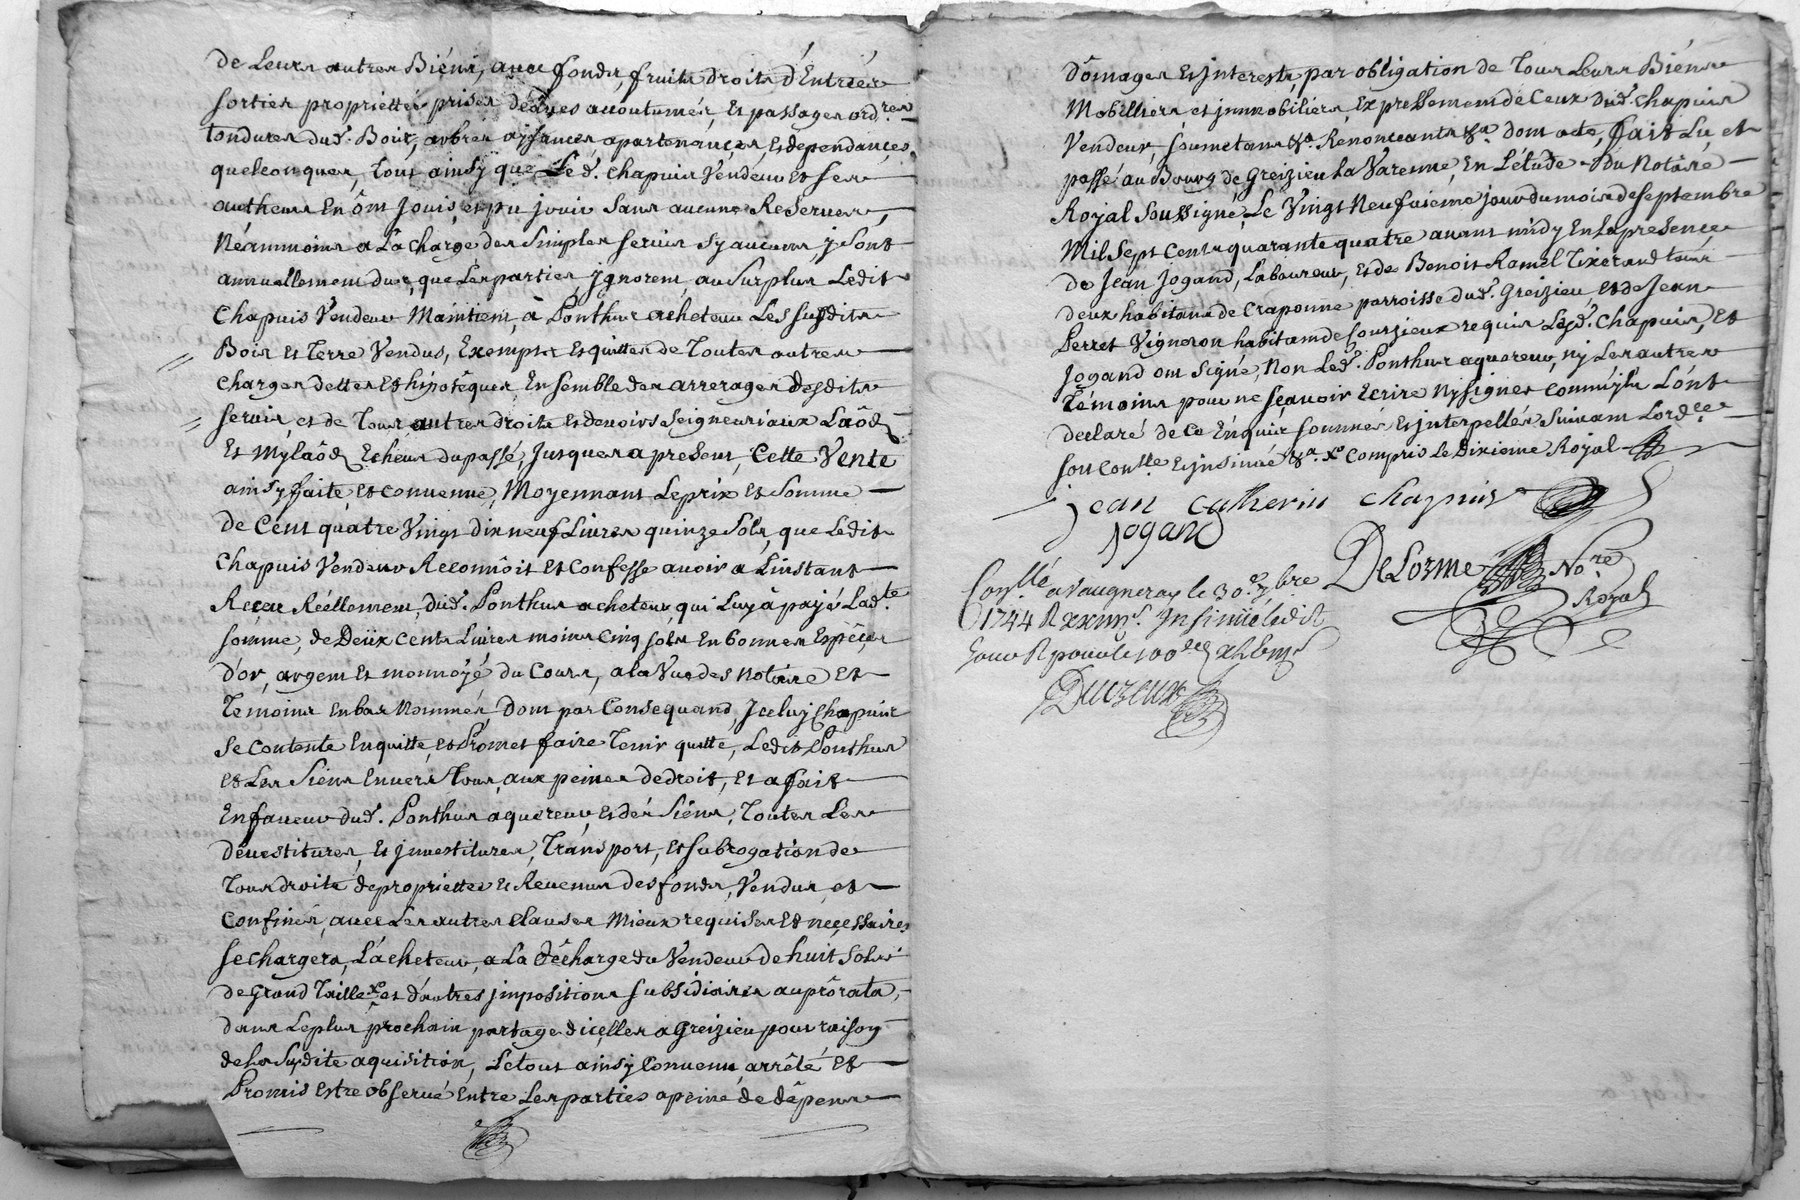 de Leurs autres Biéns, avec fonds, fruits droits d'Entrées
sorties propriettés prises déaües accoutumés, Et passages ord.res
tondures dud. Bois, arbres aysances apartenançes, Et dependançes
quelconques, Tout ainsÿ que Led. Chapuis Vendeur Et ses
autheurs En ônt Jouis, et pu jouir Sans aucunes Reserves,
Néammoins a La charge des Simples servis sy aucuns y sont
annuellement dus, que Les parties ygnorent, au Surplus Ledit
Chapuis Vendeur Maintient, à Ponthus acheteur Les susdits
Bois Et Terre Vendus, Exempts Et quittes de Toutes autres
charges dettes Et hipotêques Ensemble des arrerages desdits
servis et de Tous autres droits Et devoirs Seigneuriaux Laôds
Et Mÿlaôds Echeus du passé, Jusques a present, Cette Vente
ainsy faite Et convenue, Moyennant Le prix Et Somme
de Cent quatre Vingt Dix neuf Livres quinze Sols, que Ledit
Chapuis Vendeur Reconnôit Et Confesse avoir a L'instant
Reçeu Réellement, dud. Ponthus acheteur, qui Luy à payé Lad.te
somme, de Deüx cents Livres moins Cinq sols En bonnes Espêçes
d'or, argent Et monnoÿé du Cours, a la Vue des Notaire Et
Temoins En bas Nommés Dont par Consequand, Jceluy Chapuis
Se Contente En quitte, et Promet faire Tenir quitte, Ledit Ponthus
Et Les Siéns Envers Tous, aux peines de droit, Et a fait
En faveur dud. Ponthus aquereur, Et dés Siéns, Toutes Les
dévestitures, Et jnvestitures, Transport, Et subrogation de
Tous droits de propriettés Et Revenus des fonds, Vendus, et
Confinés, avec Les autres clauses Mieux requises Et neçessaires
se chargera, L'acheteur, a La décharge du Vendeur de huit Sols
de Grand Taille xo et d'autres jmpositions subsidiaires au prôrata,
dans Le plus prochain partage d'içelles a Greizieu pour raison
de La susdite aquisition, Le tout ainsÿ Convenu, arrêté Et
Promis Estre observé Entre Les parties a peine de dêpens
dômages Et jnterests, par obligation de Tous Leurs Biéns
Mobilliers et jmmobiliers, Expressement de Ceux Dud. Chapuis
Vendeur, soumetans &a Renonceants &a dont acte, fait Lu, et
passé au Bourg de Greizieu La Varenne, En L'étude Du Notaire
Royal Soussigné, Le Vingt Neufvieme jour du mois de septembre
Mil Sept Cents quarante quatre avant midy En La presence
de Jean Jogand, Laboureur, Et de Benoit Ramel Tixerand tous
deux habitans de Craponne parroisse dud. Greizieu, Et de Jean
Perret Vigneron habitant de Courzieux requis Lesd. Chapuis, Et
Jogand ont Signé, Non Led. Ponthus aquereur, ny Les autres
Témoins pour ne sçavoir Ecrire Ny signer comm'jls L'ont
declaré de Ce Enquis sommés Et jnterpellés Suivant Lord.ce
soit Contlle Et jnsinué &a. xo Compris Le Dixieme Royal
jean Catherin Chapuis
jogand
DeLorme No.re
Royal
Con.llé a Vaugneray le 30.e 7.bre
1744 R xxiiii s. Insinüé ledit
Jour R pour le 100e
Duczeux